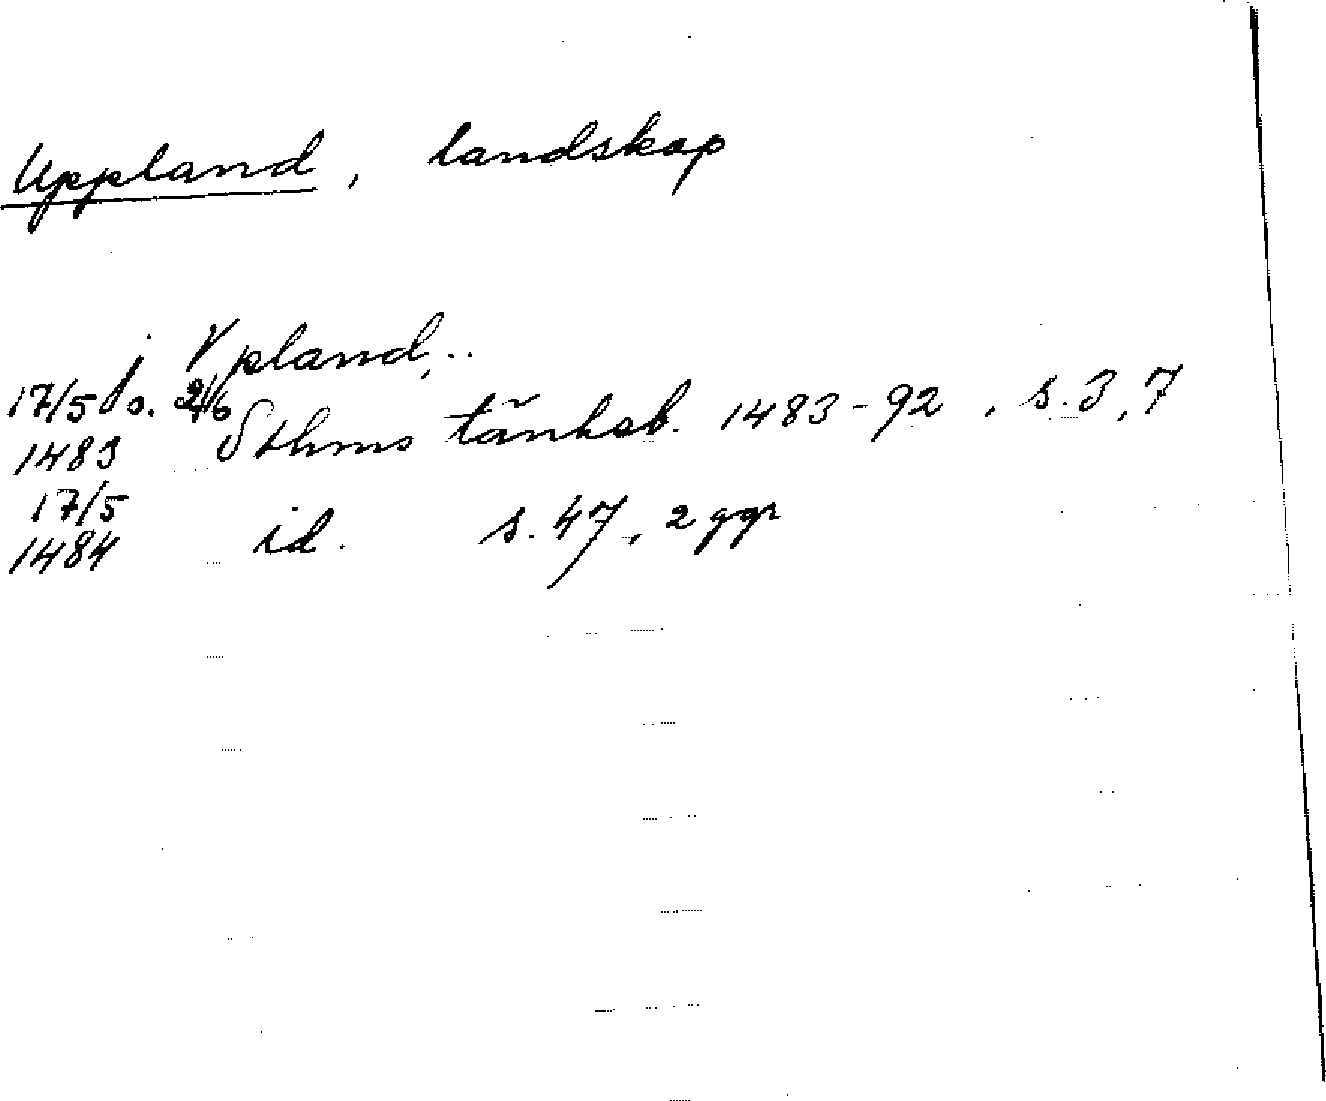 Uppland, landskap
j Vpland,..
17/5 o. 21/6 Sthms tänkeb. 1483-92, s. 3, 7
1483
17/5
1484 id. s. 47, 2 ggr